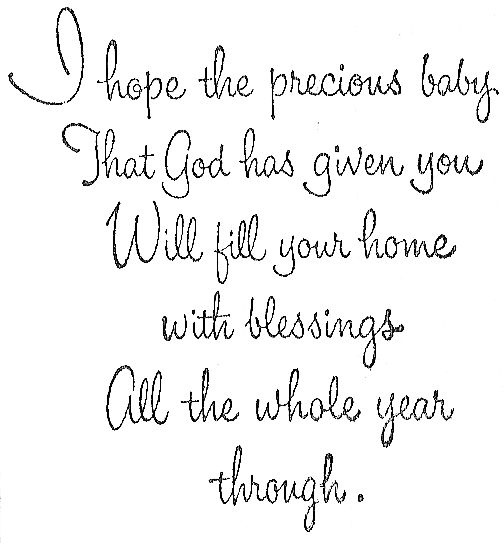 I hope the precious baby
That God has given you
Will fill your home
with blessings
All the whole year
through.